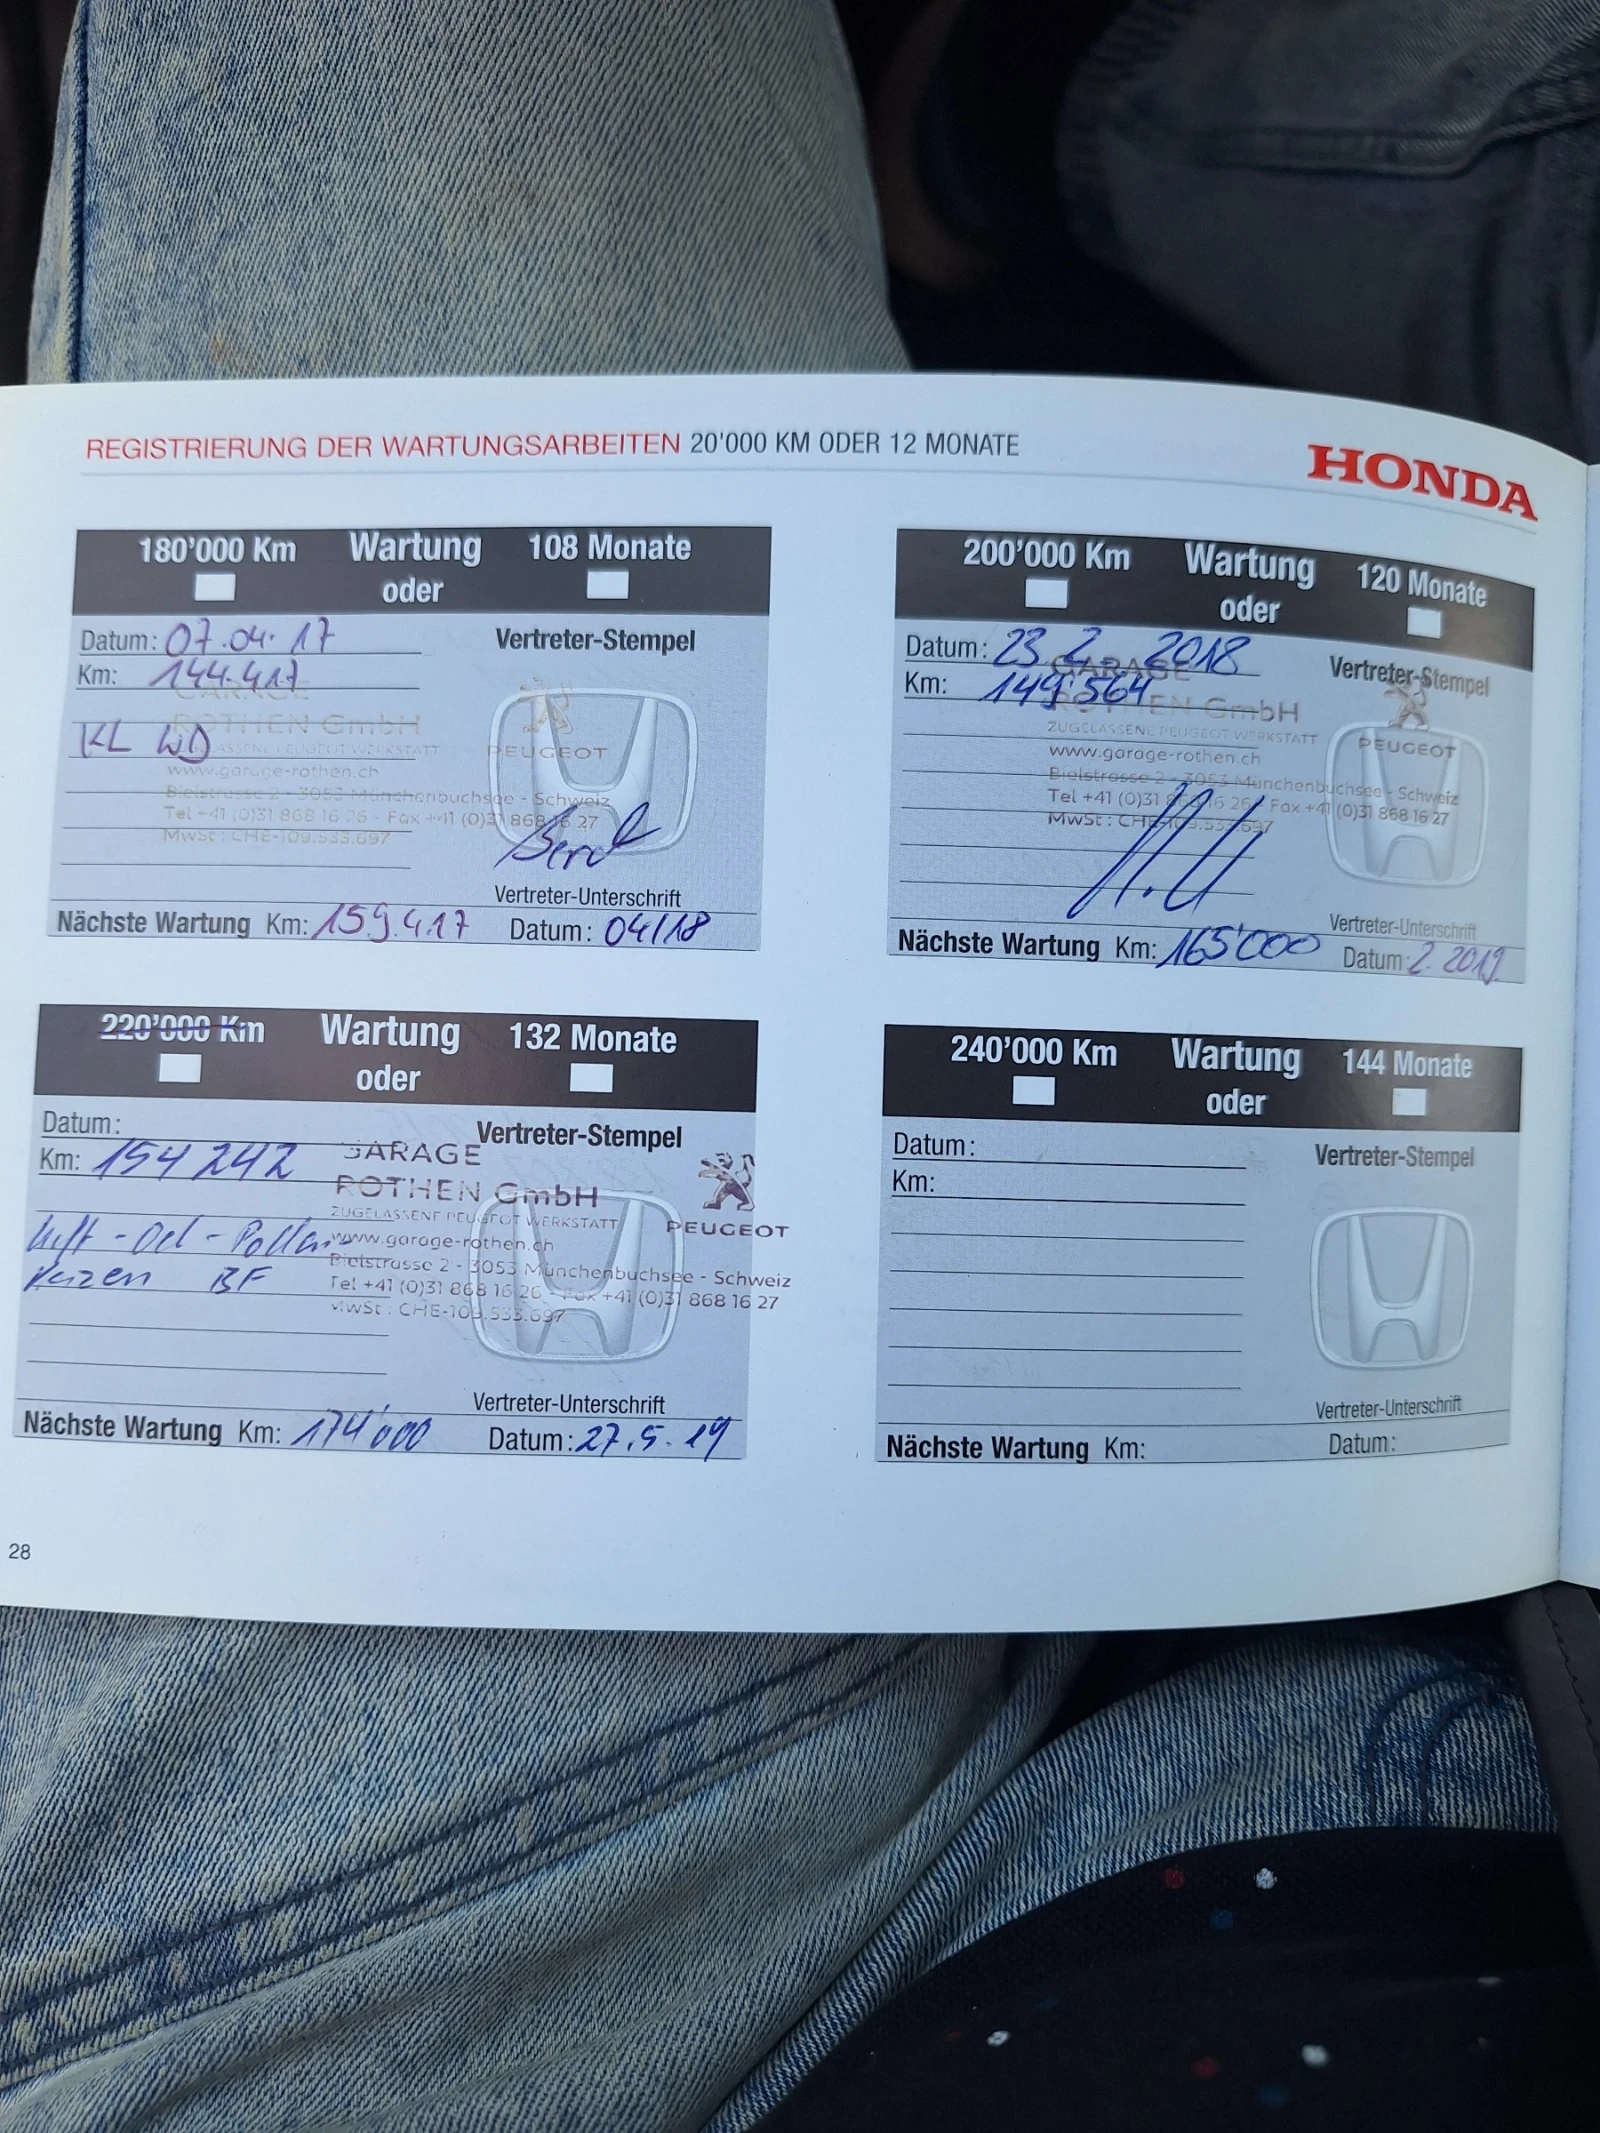 REGISTRIERUNG DER WARTUNGSARBEITEN 20'000 KM ODER 12 MONATE
HONDA
180'000 Km Wartung oder 108 Monate
Datum: 07.04.17
Vertreter-Stempel
Km: 144.417
GARAGE
ROTHEN GmbH
KL WD
ZUGELASSENE PEUGEOT WERKSTATT
PEUGEOT
www.garage-rothen.ch
Bielstrasse 2 - 3053 Münchenbuchsee - Schweiz
Tel +41 (0)31 868 16 26 - Fax +41 (0)31 868 16 27
MwSt : CHE-109.533.697
Vertreter-Unterschrift
Nächste Wartung Km: 159.417 Datum: 04/18
200'000 Km Wartung oder 120 Monate
Datum: 23.2.2018
Vertreter-Stempel
Km: 149'564
GARAGE
ROTHEN GmbH
ZUGELASSENE PEUGEOT WERKSTATT
PEUGEOT
www.garage-rothen.ch
Bielstrasse 2 - 3053 Münchenbuchsee - Schweiz
Tel +41 (0)31 868 16 26 - Fax +41 (0)31 868 16 27
MwSt : CHE-109.533.697
Vertreter-Unterschrift
Nächste Wartung Km: 165'000 Datum: 2.2019
220'000 Km Wartung oder 132 Monate
Datum:
Vertreter-Stempel
Km: 154 242
GARAGE
ROTHEN GmbH
ZUGELASSENE PEUGEOT WERKSTATT
PEUGEOT
Luft - Oel - Pollen
www.garage-rothen.ch
Kerzen BF
Bielstrasse 2 - 3053 Münchenbuchsee - Schweiz
Tel +41 (0)31 868 16 26 - Fax +41 (0)31 868 16 27
MwSt : CHE-109.533.697
Vertreter-Unterschrift
Nächste Wartung Km: 174'000 Datum: 27.5.19
240'000 Km Wartung oder 144 Monate
Datum:
Vertreter-Stempel
Km:
Vertreter-Unterschrift
Nächste Wartung Km: Datum:
28